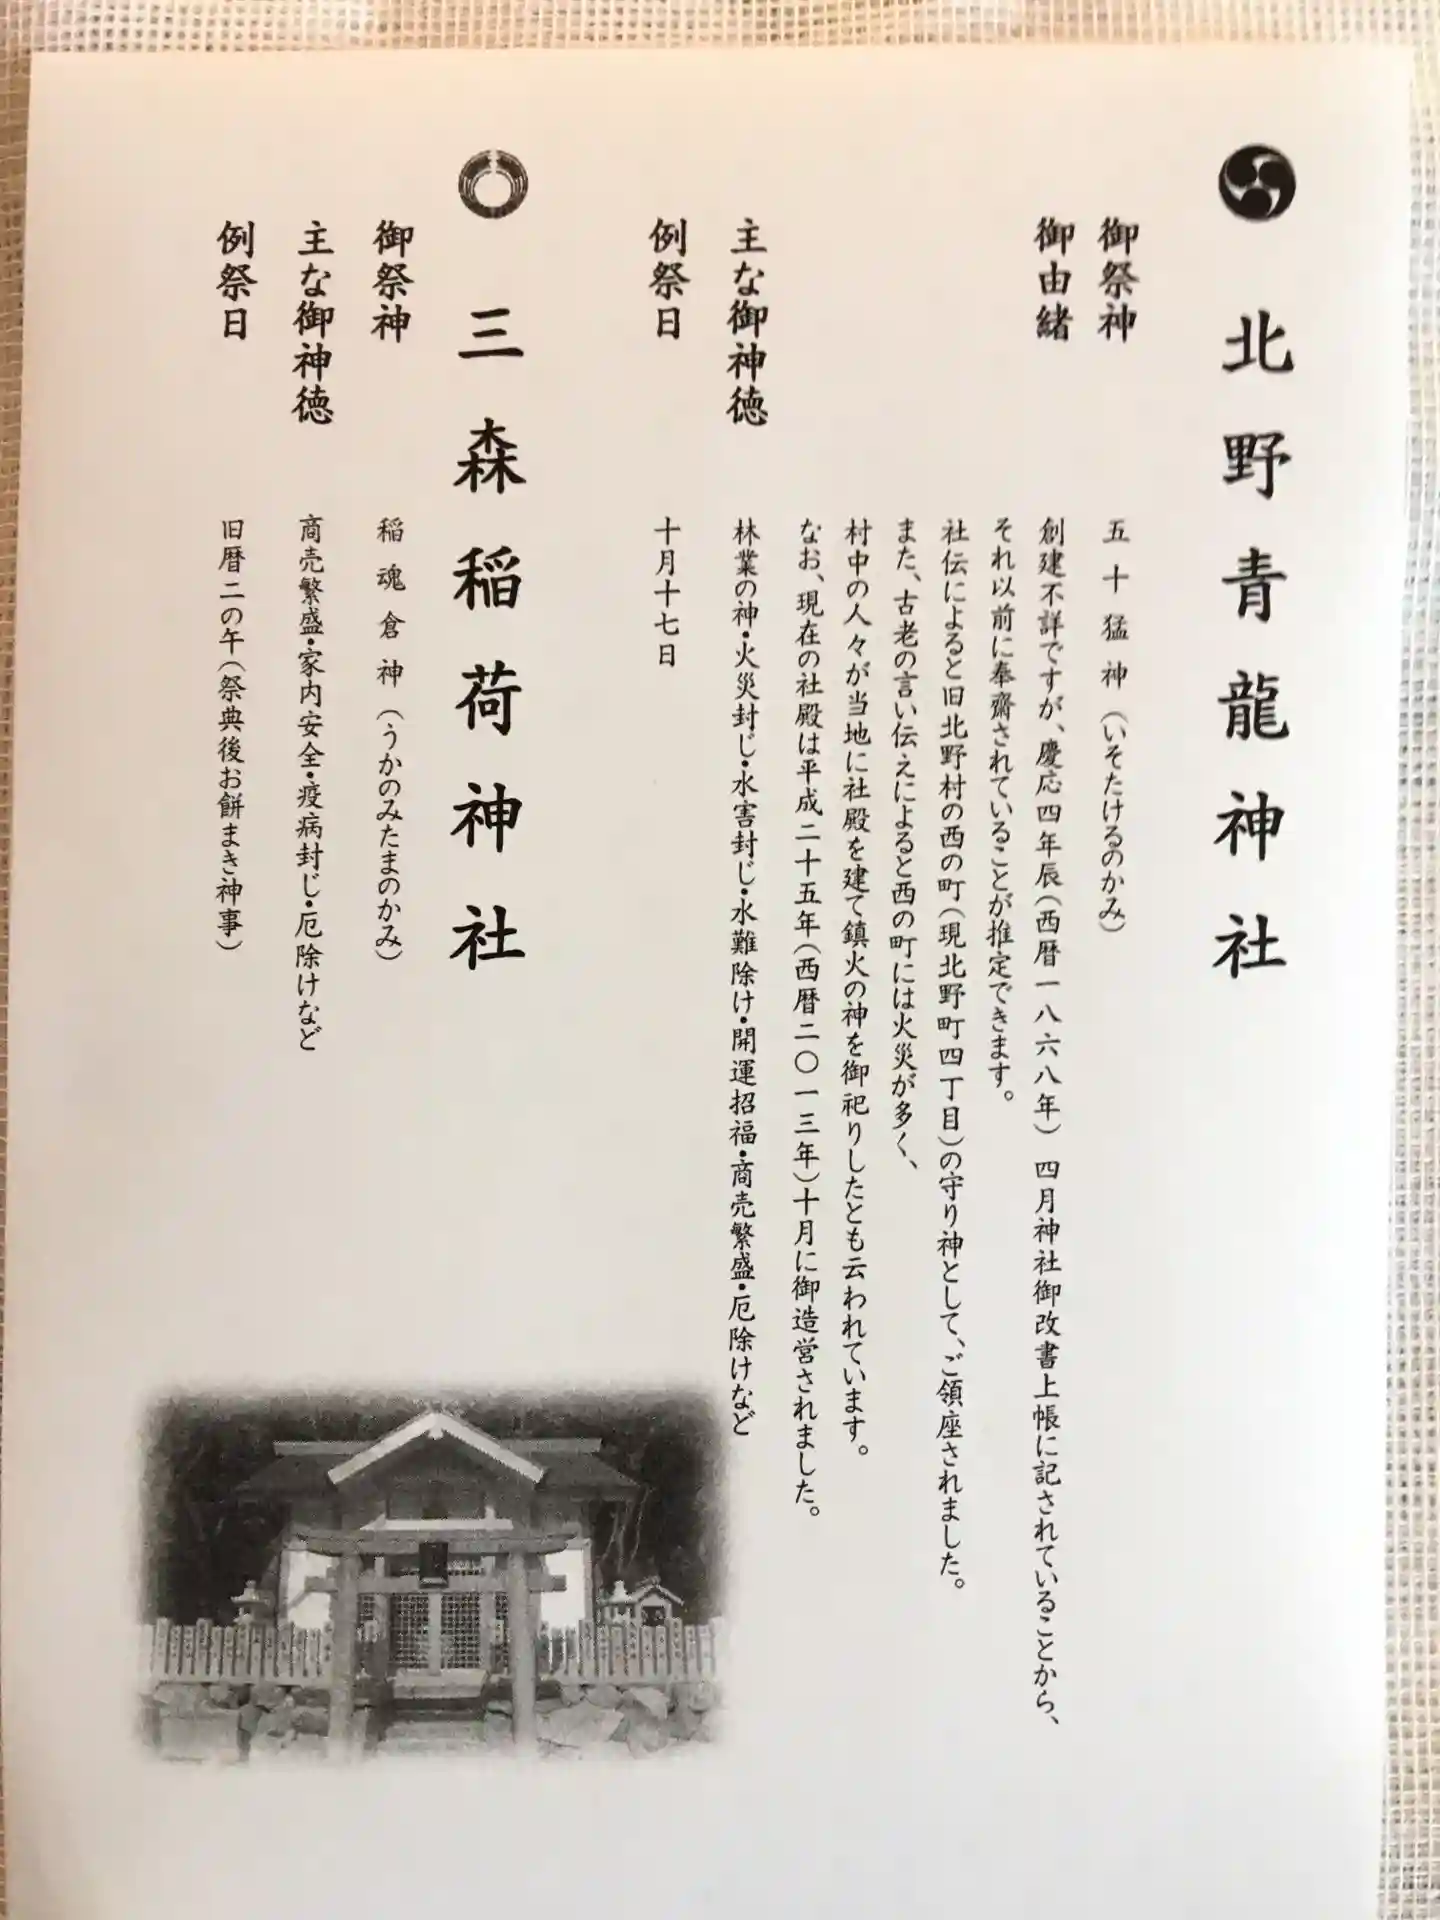 北野青龍神社
御祭神 五十猛神（いそたけるのかみ）
御由緒 創建不詳ですが、慶応四年辰（西暦一八六八年） 四月神社御改書上帳に記されていることから、
それ以前に奉齋されていることが推定できます。
社伝によると旧北野村の西の町（現北野町四丁目）の守り神として、ご領座されました。
また、古老の言い伝えによると西の町には火災が多く、
村中の人々が当地に社殿を建て鎮火の神を御祀りしたとも云われています。
なお、現在の社殿は平成二十五年（西暦二〇一三年）十月に御造営されました。
主な御神徳 林業の神・火災封じ・水害封じ・水難除け・開運招福・商売繁盛・厄除けなど
例祭日 十月十七日
三森稲荷神社
御祭神 稲魂倉神（うかのみたまのかみ）
主な御神徳 商売繁盛・家内安全・疫病封じ・厄除けなど
例祭日 旧暦二の午（祭典後お餅まき神事）